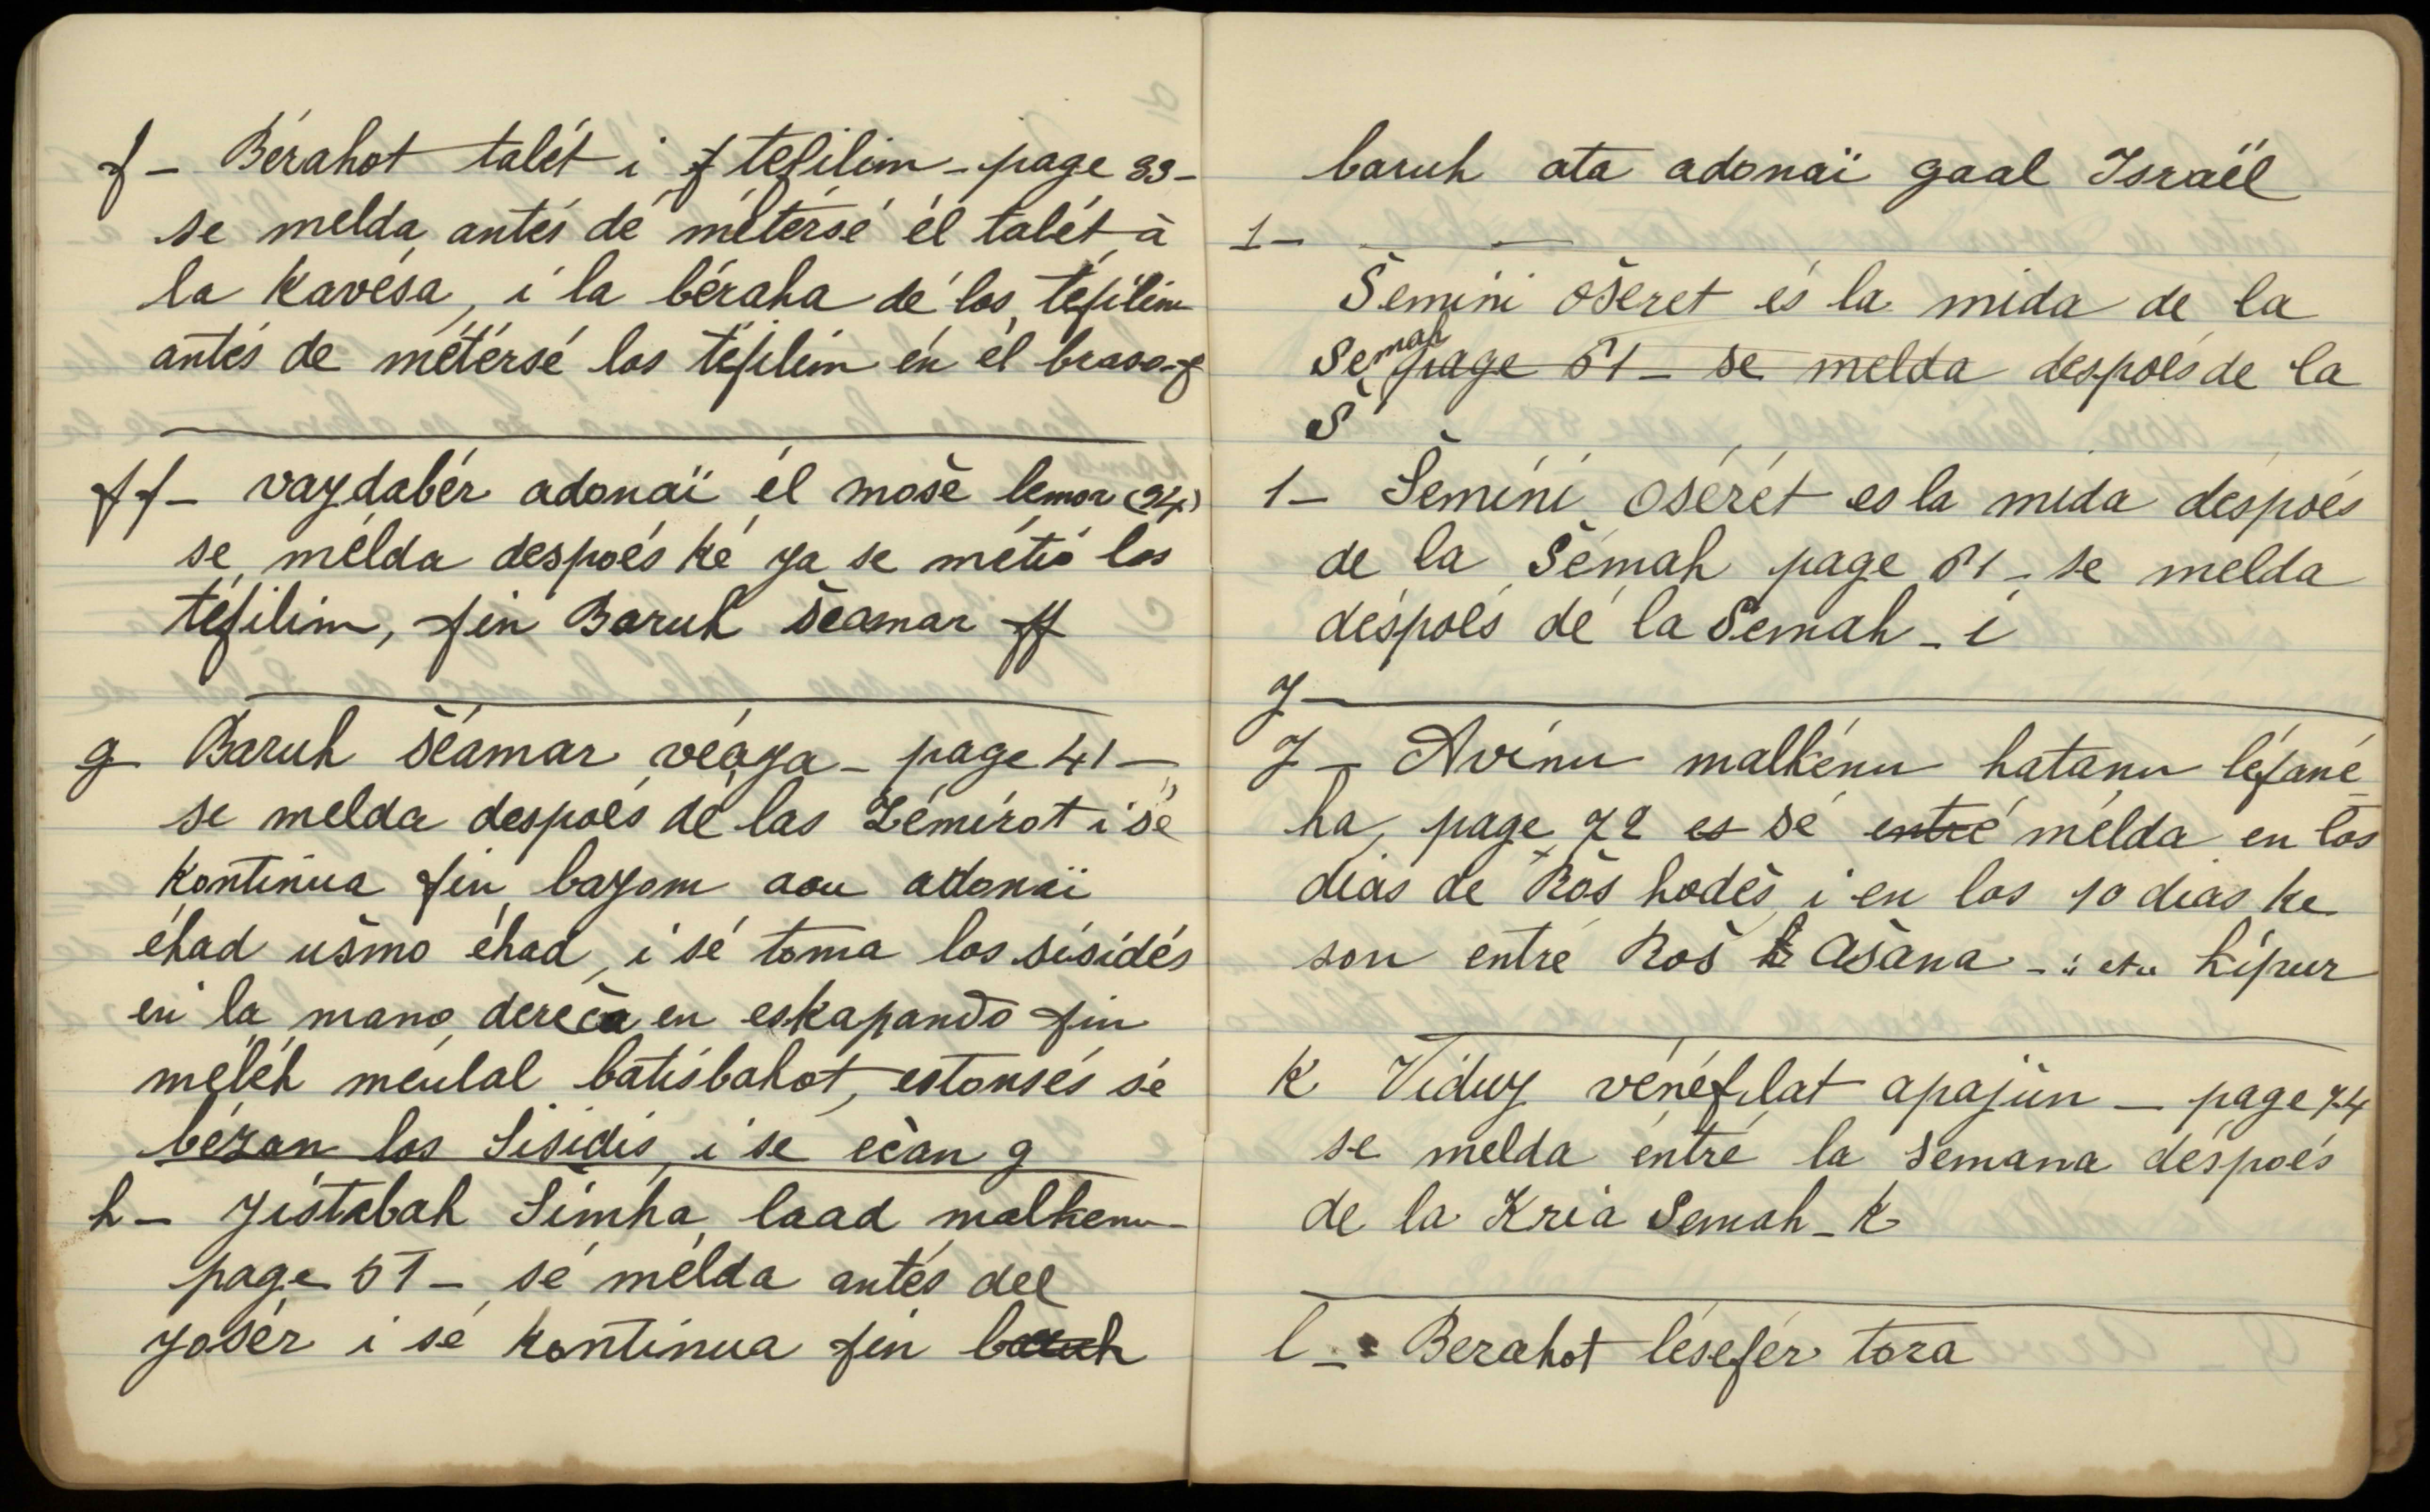 f - Bérahot talét i f tefilim - page 33 -
se melda antés dé métérsé él talét à
la kavésa, i la béraha dé los téfilim
antés de métérsé los téfilim én él braso - f
ff - vaydabér adonaï él mošè lemor (34)
se mélda despoés ké ya se métio los
téfilim, fin Baruh šéamar ff
g Baruh šéamar véaya - page 41 -
se melda despoés dé las Zémirot i sé
kontinua fin bayom aou adonaï
éhad ušmo éhad, i sé toma los sisidés
en la mano dereča en eskapando fin
méléh méulal batisbahot, estonsés sé
bézan los sisidis, i se ečan g
h - yištabah šimha laad malkenu -
page 51 - sé mélda antés del
yosér i sé kontinua fin baruh
baruh ata adonaï gaal Israël
1 -
Šemini ošeret és la mida de la
Semah page 51 - se melda despoés de la
Š
1 - Šemini osérét es la mida déspoés
de la Šémah page 51 - se melda
déspoés dé la Semah - i
J -
J - Avinu malkénu hatanu léfané
ha, page 72 es sé entré mélda en los
dias de Roš hodéš i en los 10 dias ke
son entré Roš Ašana - kipur
k Viduy vénéfilat apajim - page 74
se melda éntré la semana déspoés
de la Kria Semah - k
l - Berahot léséfér tora